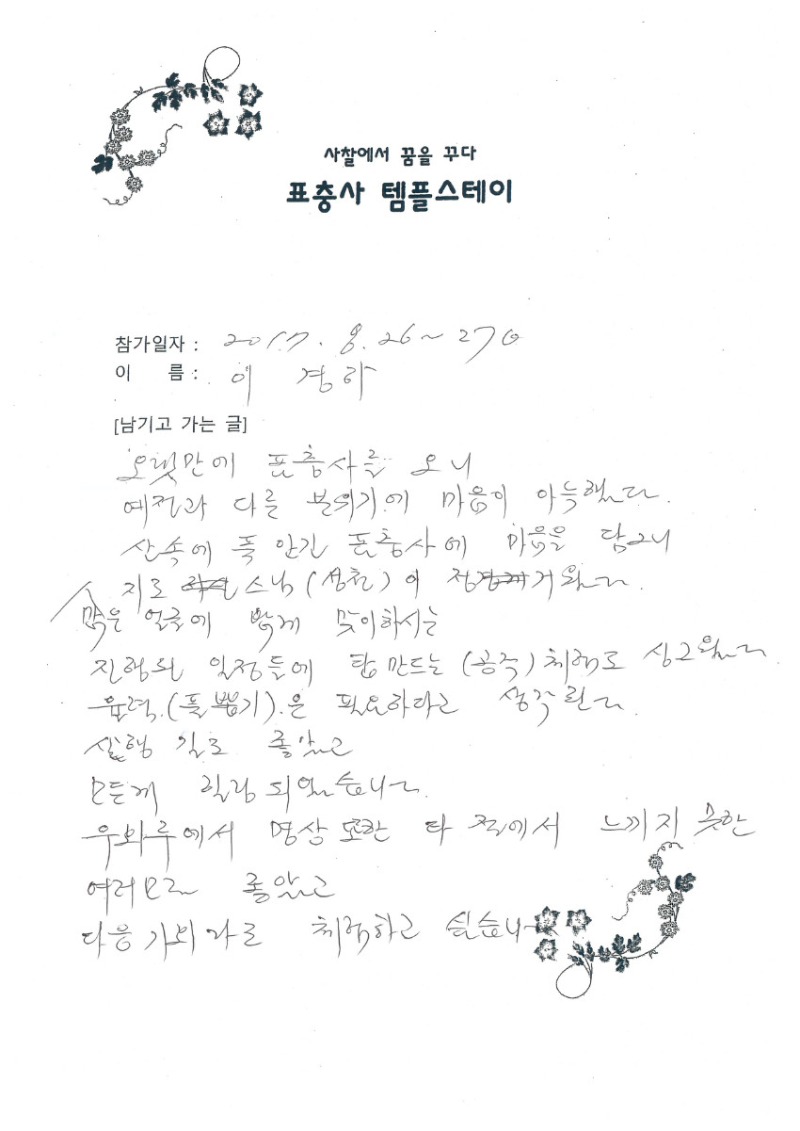 사찰에서 꿈을 꾸다
표충사 템플스테이
참가일자 : 2017. 8. 26~27일
이 름 : 이 경하
[남기고 가는 글]
오랫만에 표충사를 오니
예전과 다른 분위기에 마음이 아늑했다.
산속에 푹 안긴 표충사에 마음을 담그니
지도 스님 ( ) 이 정겨웠다.
맑은 얼굴에 밝게 맞이하시는
진행된 일정들에 탑 만드는 (공주) 체험도 싱그웠다
울력.(풀뽑기).은 필요하다고 생각된다.
산행 길도 좋았고
모든게 힐링 되었습니다.
우화루에서 명상 또한 타 절에서 느끼지 못한
여러모로 좋았고
다음 기회 가 체험하고 싶습니다